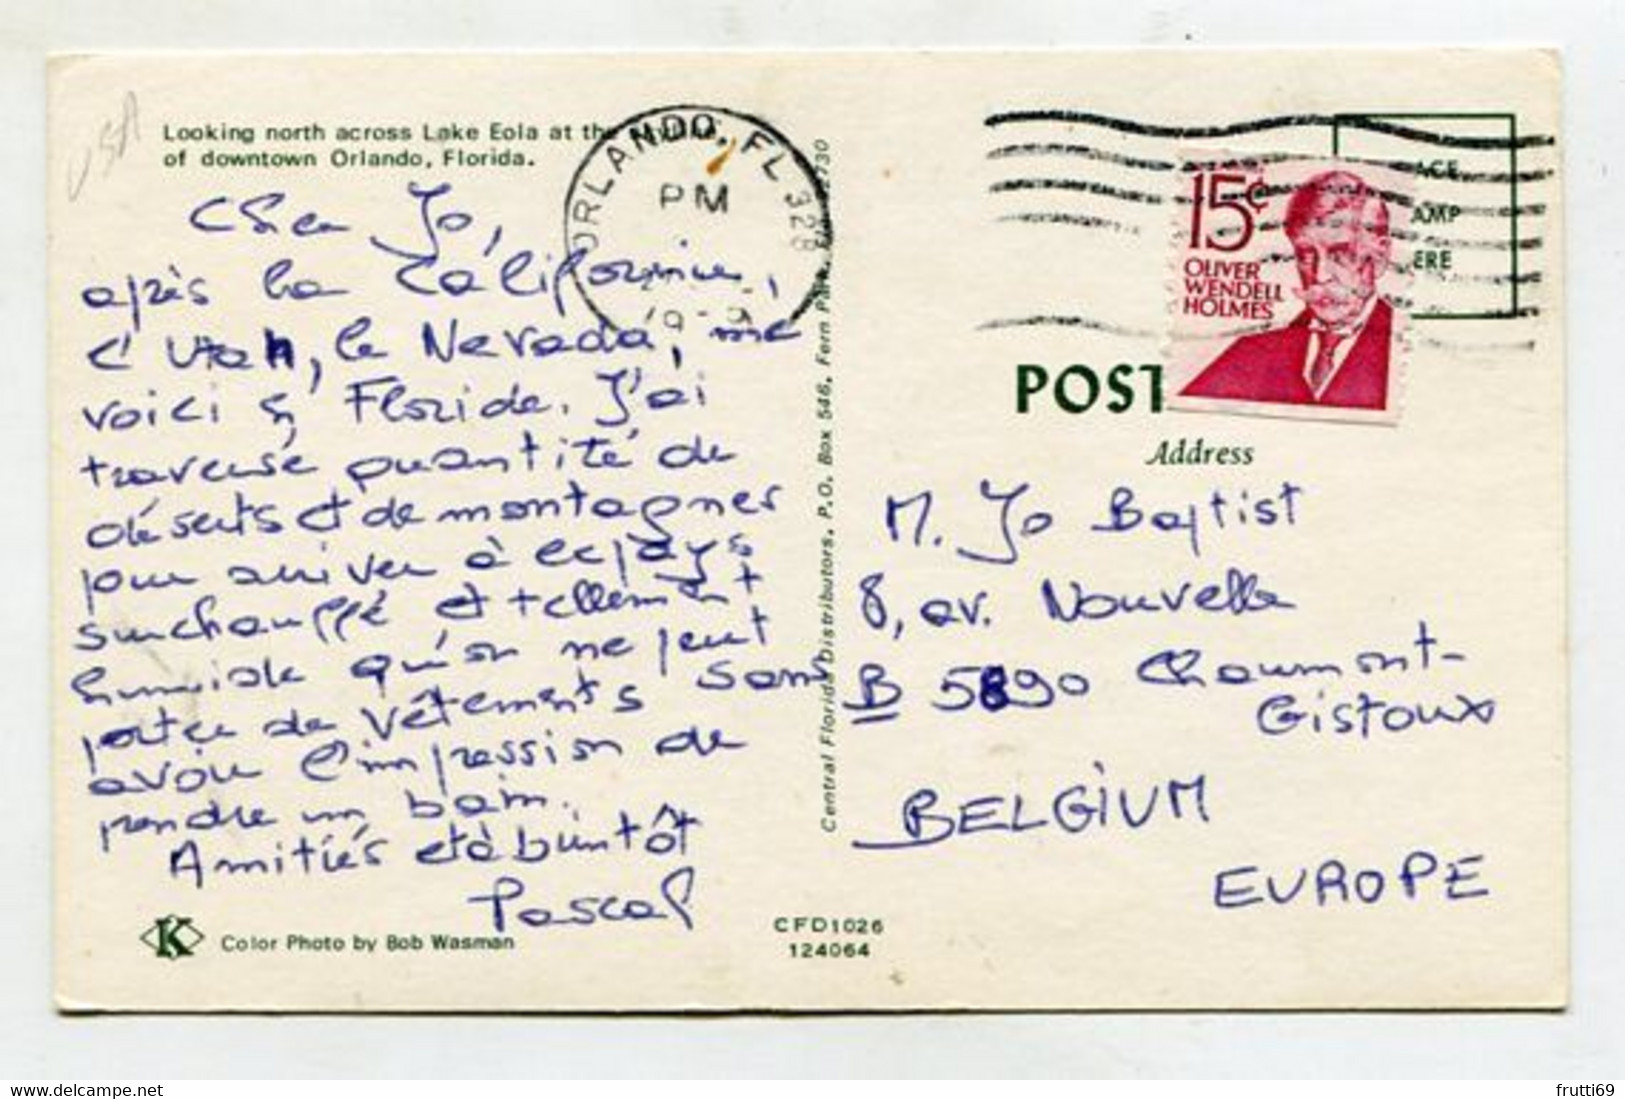 USA
Looking north across Lake Eola at the
of downtown Orlando, Florida.
Cher Jo,
après la Californie,
l'Utah, le Nevada, me
voici en Floride. J'ai
traversé quantité de
déserts et de montagnes
pour arriver à ce pays
surchauffé et tellement
humide qu'on ne peut
porter de vêtements sans
avoir l'impression de
prendre un bain.
Amitiés et à bientôt
Pascal
K Color Photo by Bob Wasman
CFD1026
124064
Central Florida Distributors, P.O. Box 546, Fern Park,
ORLANDO, FL 328
PM
15¢
OLIVER
WENDELL
HOLMES
ACE
AMP
ERE
POST
Address
M. Jo Baptist
8, av. Nouvelle
B 5890 Chaumont-
Gistoux
BELGIUM
EUROPE
frutti69